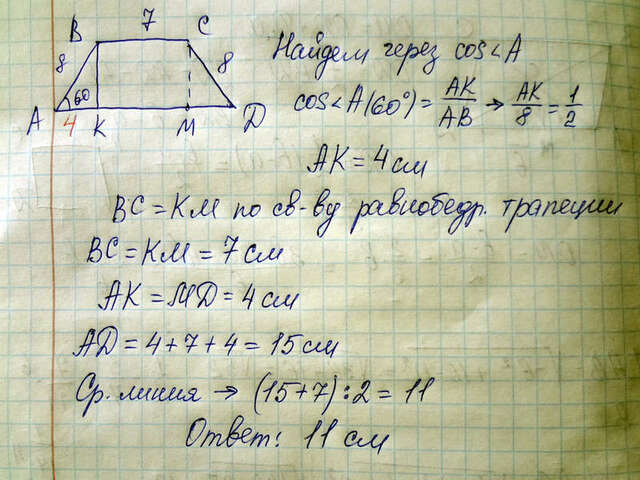 7
B C
8 8
60
A 4 K M D
Найдем через cos<A
cos<A(60°) = AK/AB → AK/8 = 1/2
AK = 4 см
BC = KM по св-ву равнобедр. трапеции
BC = KM = 7 см
AK = MD = 4 см
AD = 4 + 7 + 4 = 15 см
Ср. линия → (15+7):2 = 11
Ответ: 11 см